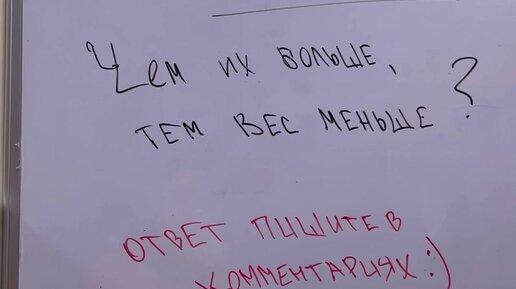 Чем их больше,
тем вес меньше?
ответ пишите в
комментариях:)